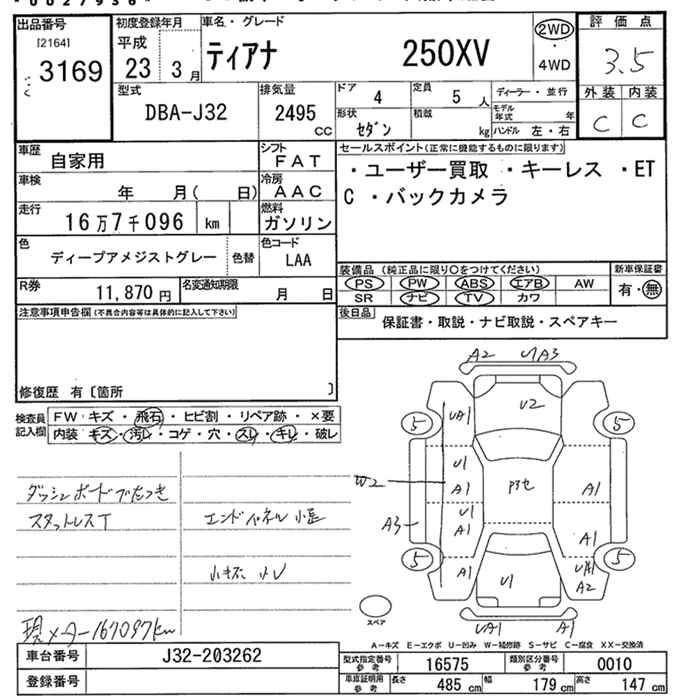 出品番号
[2164]
3169
初度登録年月
平成
23 3月
車名・グレード
ティアナ 250XV
2WD
・
4WD
評価点
3.5
外装 内装
C C
型式
DBA-J32
排気量
2495
cc
ドア 4
定員 5人
形状 セダン
積載 kg
ディーラー・並行
モデル年式 年
ハンドル 左・右
車歴
自家用
シフト
FAT
車検
年 月( 日)
冷房
AAC
走行
16万7千096 km
燃料
ガソリン
色
ディープアメジストグレー
色替
色コード
LAA
R券
11,870円
名変通知期限
月 日
セールスポイント(正常に機能するものに限ります)
・ユーザー買取 ・キーレス ・ET
C ・バックカメラ
装備品 (純正品に限り〇をつけてください)
PS PW ABS エアB AW
SR ナビ TV カワ
新車保証書
有・無
後日品
保証書・取説・ナビ取説・スペアキー
注意事項申告欄(不具合内容等は具体的に記入して下さい)
修復歴 有〔箇所 〕
検査員
記入欄
FW キズ・飛石・ヒビ割・リペア跡・×要
内装 キズ・汚レ・コゲ・穴・スレ・キレ・破レ
ダッシュボードベタつき
スタットレスT
エンドパネル小
小キズ 小U
現メーター167097km
A2 UA3
5 UA1 U2 5
U1
W2 A1 A1
U1
A3 A1 A1
5 A1 U1 A2 5
UA1 A1
スペア
A-キズ E-エクボ U-凹み W-補修跡 S-サビ C-腐食 XX-交換済
車台番号 J32-203262
登録番号
型式指定番号 参考 16575
類別区分番号 参考 0010
車庫証明用 参考
長さ 485 cm
幅 179 cm
高さ 147 cm